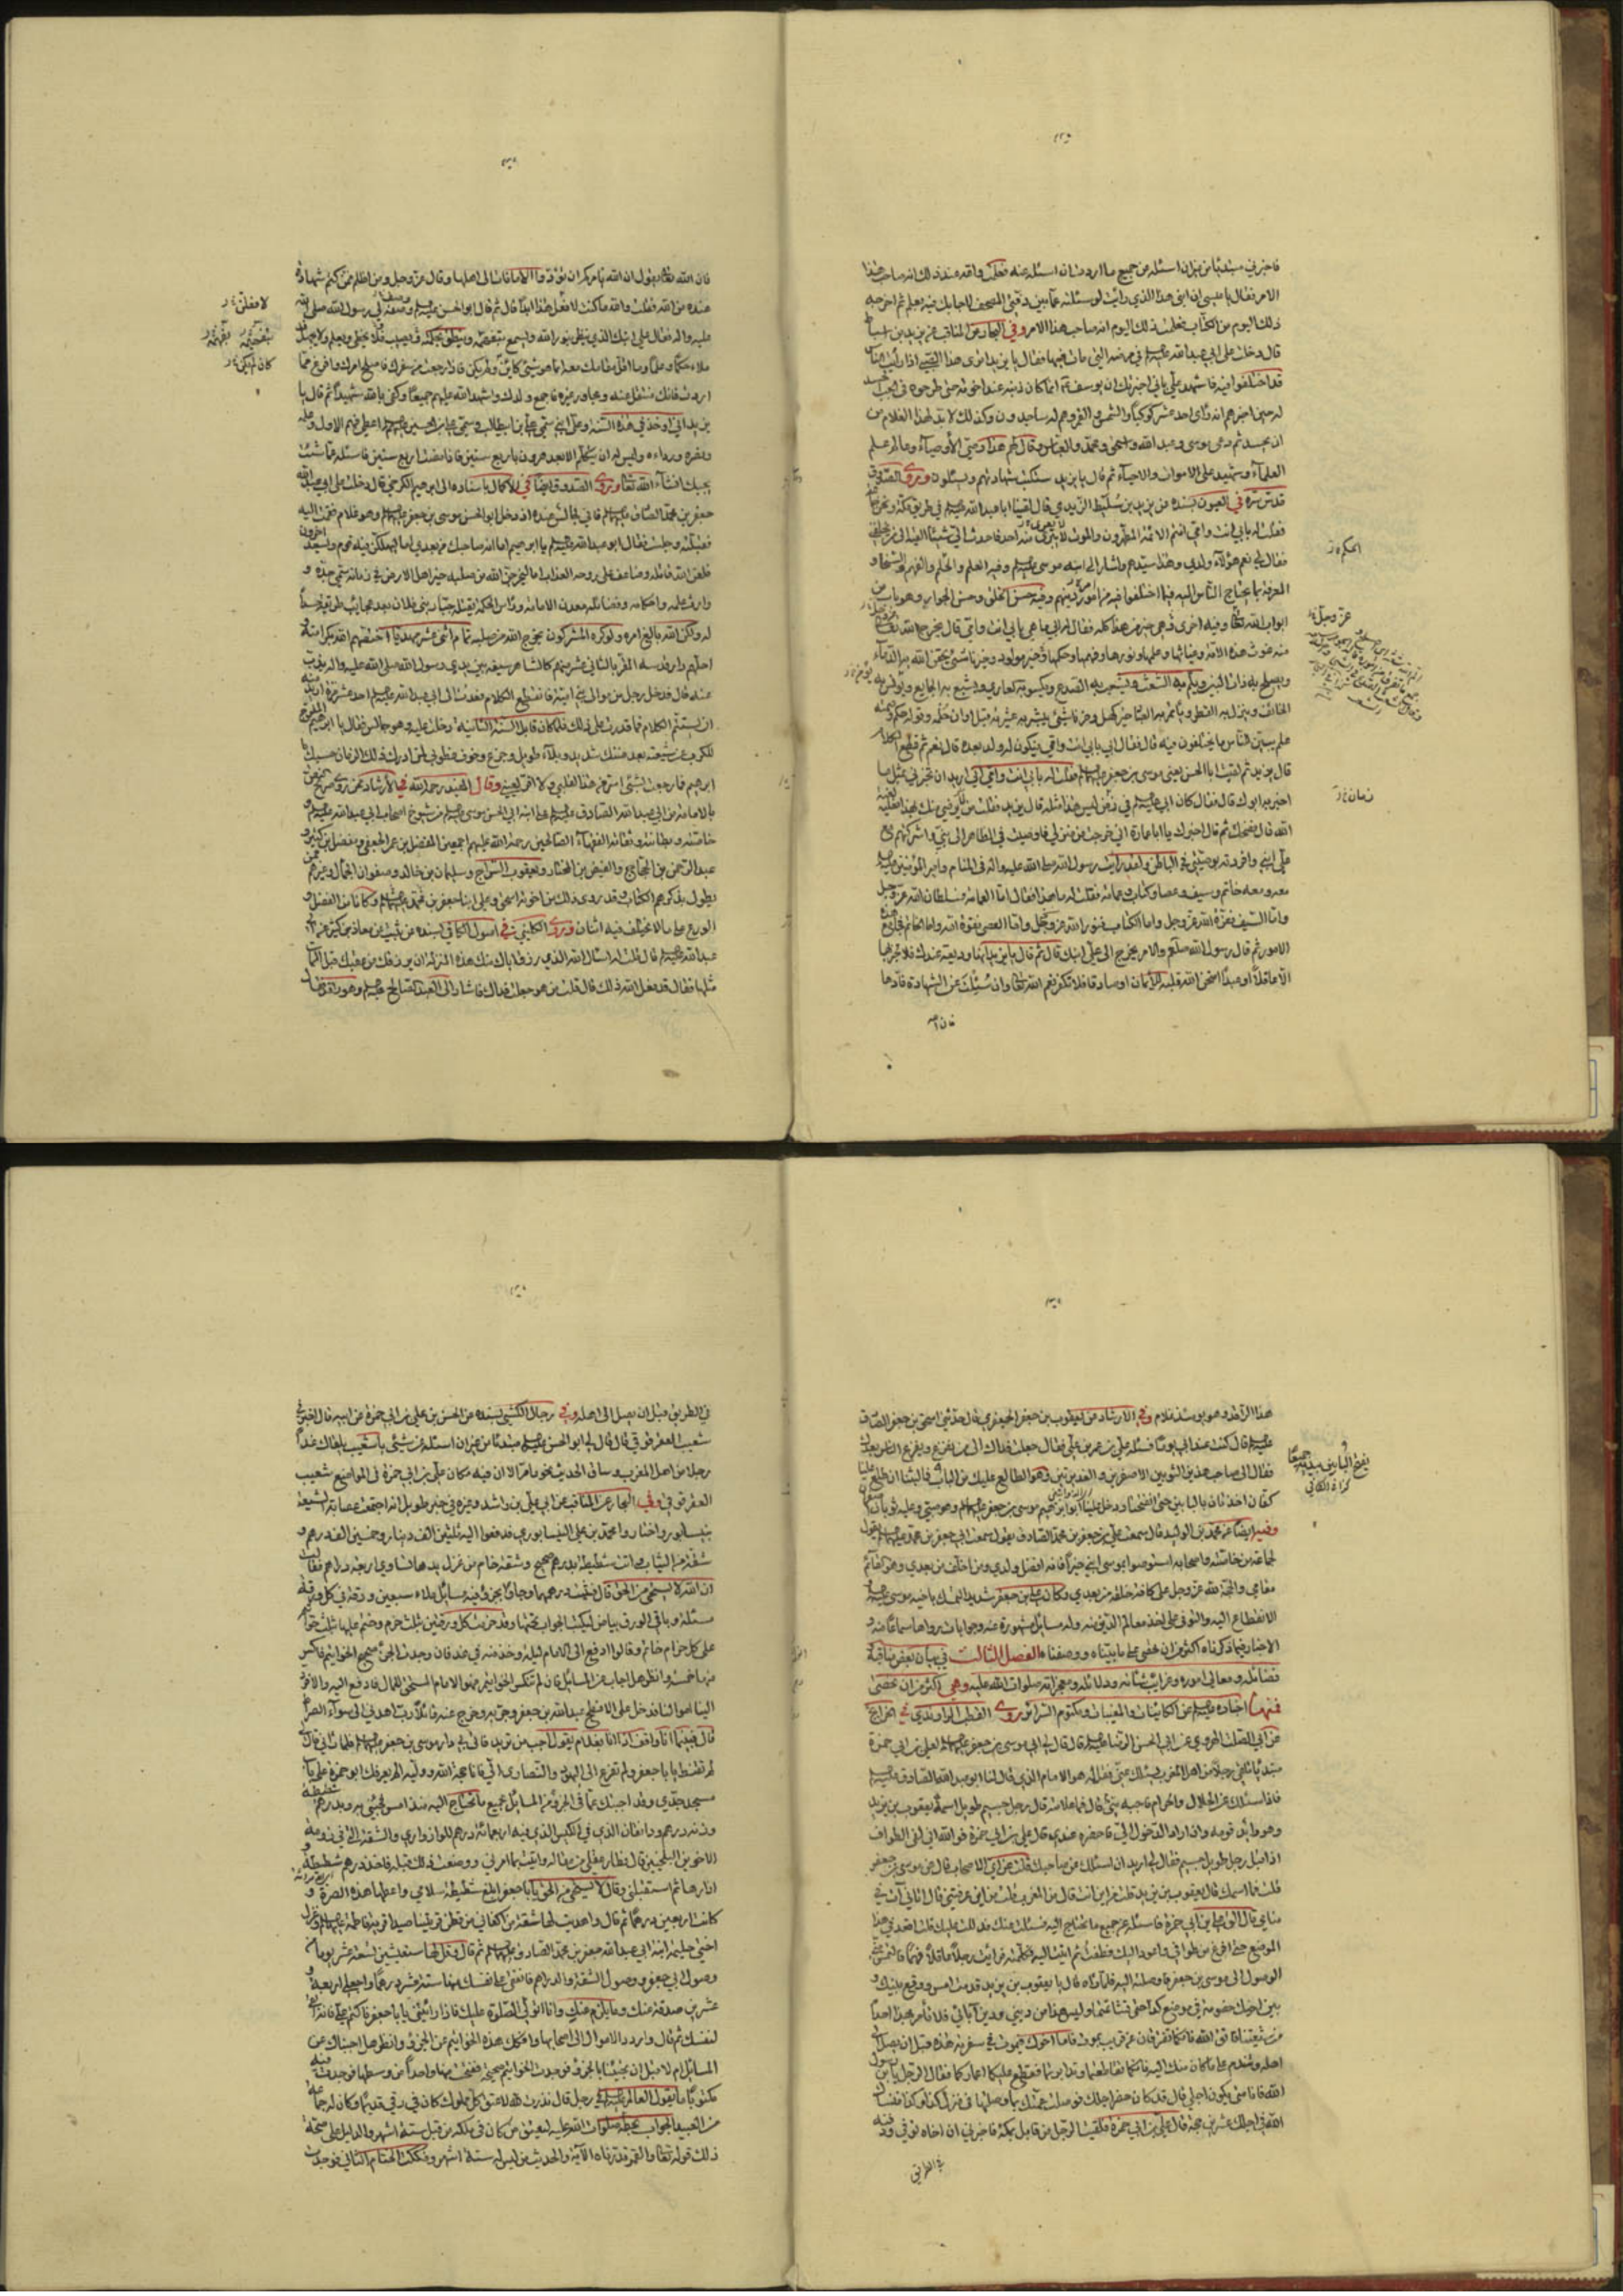 فاخبرني مبتدئا من غير ان اسئله عن جميع ما اردت ان اسئله عنه فعلمت والله عند ذلك انه صاحب هذا
الامر فقال يا عيسى ان ابني هذا الذي رايت لو سئلته عما بين دفتي المصحف لاجابك فيه بعلم ثم اخرجه
ذلك اليوم من الكتاب فعلمت ذلك اليوم انه صاحب هذا الامر وفي البحار عن المناقب عن يزيد بن اسباط
قال دخلت على ابي عبد الله في مرضه التي مات فيها فقال يا يزيد اترى هذا الصبي اذا رايت الناس
قد اختلفوا فيه فاشهد علي باني اخبرتك ان يوسف انما كان ذنبه عند اخوته حتى طرحوه في الجب الحسد
له حين اخبرهم انه راى احد عشر كوكبا والشمس والقمر وهم له ساجدون وكذلك لا بد لهذا الغلام من
ان يحسد ثم دعى موسى وعبد الله واسحق ومحمد والعباس وقال لهم هذا وصي الأوصياء وعالم علم
العلماء وشهيد على الاموات والاحياء ثم قال يا يزيد ستكتب شهادتهم ويسئلون وروى الصدوق
قدس سره في العيون بسنده عن يزيد بن سليط الزيدي قال لقينا ابا عبد الله في طريق مكة ونحن جماعة
فقلت له بابي انت وامي انتم الائمة المطهرون والموت لا يعرى منه احد فاحدث الي شيئا القيه الى من يخلفني
فقال لي نعم هؤلاء ولدي وهذا سيدهم واشار الى ابنه موسى وفيه العلم والحلم والفهم والسخاء و
المعرفة بما يحتاج الناس اليه فيما اختلفوا فيه من امور دينهم وفيه حسن الخلق وحسن الجوار وهو باب من
ابواب الله تعالى وفيه اخرى هي خير من هذا كله فقال له ابي ما هي بابي انت وامي قال يخرج الله تعالى
منه غوث هذه الامة وغياثها وعلمها ونورها وفهمها وحكمها وخير مولود وخير ناشئ يحقن الله به الدماء
ويصلح به ذات البين ويلم به الشعث ويشعب به الصدع ويكسو به العاري ويشبع به الجايع ويؤمن به
الخائف وينزل به القطر وياتمر به العباد خير كهل وخير ناشئ يبشر به عشيرته قبل اوان حلمه وقوله حكم وصمته
علم يبين للناس ما يختلفون فيه قال فقال ابي بابي انت وامي فيكون له ولد بعده قال نعم ثم قطع الكلام
قال يزيد ثم لقيت ابا الحسن يعني موسى بن جعفر فقلت له بابي انت وامي اني اريد ان تخبرني بمثل ما
اخبر به ابوك قال فقال كان ابي في زمن ليس هذا مثله قال يزيد فقلت من يرضى منك بهذا فعليه لعنة
الله قال فضحك ثم قال اخبرك يا ابا عمارة اني خرجت من منزلي فاوصيت في الظاهر الى بني واشركتهم مع
علي ابني وافردته بوصيتي في الباطن ولقد رايت رسول الله صلى الله عليه واله في المنام وامير المؤمنين
معه ومعه خاتم وسيف وعصا وكتاب وعمامة فقلت له ما هذا فقال اما العمامة فسلطان الله عز وجل
واما السيف فعزة الله عز وجل واما الكتاب فنور الله عز وجل واما العصى فقوة الله واما الخاتم فجامع هذه
الامور ثم قال رسول الله صلعم والامر يخرج الى علي ابنك قال ثم قال يا يزيد انها وديعة عندك فلا تخبر بها
الا عاقلا او عبدا امتحن الله قلبه للايمان او صادقا فلا تكفر نعم الله تعالى وان سئلت عن الشهادة فادها
فان الله
عز وجل
زمان
فان الله تعالى يقول ان الله يامركم ان تؤدوا الامانات الى اهلها وقال عز وجل ومن اظلم ممن كتم شهادة
عنده من الله فقلت والله ما كنت لافعل هذا ابدا قال ثم قال ابو الحسن وصفه لي رسول الله صلى الله
عليه واله فقال علي ابنك الذي ينظر بنور الله ويسمع بتفهمه وينطق بحكمته يصيب فلا يخطي ويعلم ولا يجهل
ملاء حكما وعلما وما اقل مقامك معه انما هو شيء كان لم يكن فاذا رجعت من سفرك فاصلح امرك وافرغ مما
اردت فانك منتقل عنه ومجاور غيره فاجمع ولدك واشهد الله عليهم جميعا وكفى بالله شهيدا ثم قال يا
يزيد اني اوخذ في هذه السنة وعلي ابني سمي علي بن ابيطالب وسمي علي بن الحسين اعطي فهم الاول وعلمه
ونصره ورداءه وليس له ان يتكلم الا بعد هرون باربع سنين فاذا مضت اربع سنين فاسئله عما شئت
يجبك انشاء الله تعالى وروى الصدوق ايضا في الاكمال باسناده الى ابراهيم الكرخي قال دخلت على ابي عبد الله
جعفر بن محمد الصادق فاني لجالس عنده اذ دخل ابو الحسن موسى بن جعفر وهو غلام فقمت اليه
فقبلته وجلست فقال ابو عبد الله يا ابراهيم اما انه صاحبك من بعدي اما ليهلكن فيه قوم ويسعد اخرون
فلعن الله قاتله وضاعف على روحه العذاب اما ليخرجن الله من صلبه خير اهل الارض في زمانه سمي جده و
وارث علمه واحكامه وفضائله معدن الامامة وراس الحكمة يقتله جبار بني فلان بعد عجايب طريفة حسدا
له ولكن الله بالغ امره ولو كره المشركون يخرج الله من صلبه تمام اثني عشر مهديا اختصهم الله بكرامته و
احلهم دار قدسه المقر بالثاني عشر منهم كالشاهر سيفه بين يدي رسول الله صلى الله عليه واله يذب
عنه قال فدخل رجل من موالي بني امية فانقطع الكلام فعدت الى ابي عبد الله احد عشر مرة اريد منه
ان يستتم الكلام فما قدرت على ذلك فلما كان قابل السنة الثانية دخلت عليه وهو جالس فقال يا ابراهيم المفرج
للكرب عن شيعته بعد ضنك شديد وبلاء طويل وجزع وخوف فطوبى لمن ادرك ذلك الزمان حسبك يا
ابراهيم فما رجعت بشيء اسر من هذا لقلبي ولا اقر لعيني وقال المفيد رحمه الله في الارشاد ممن روى صريح النص
بالامامة من ابي عبد الله الصادق على ابنه ابي الحسن موسى من شيوخ اصحاب ابي عبد الله
خاصته وبطانته وثقاته الفقهاء الصالحين رحمة الله عليهم اجمعين المفضل بن عمر الجعفي ومعاذ بن كثير و
عبد الرحمن بن الحجاج والفيض بن المختار ويعقوب السراج وسليمان بن خالد وصفوان الجمال وغيرهم ممن
يطول بذكرهم الكتاب وقد روى ذلك من اخوته اسحق وعلي ابنا جعفر بن محمد وكانا من الفضل و
الورع على ما لا يختلف فيه اثنان وروى الكليني في اصول الكافي بسنده عن ثبيت عن معاذ بن كثير عن ابي
عبد الله قال قلت له اسئل الله الذي رزق اباك منك هذه المنزلة ان يرزقك من عقبك قبل الممات
مثلها فقال قد فعل الله ذلك قال قلت من هو جعلت فداك فاشار الى العبد الصالح وهو راقد فقال
هذا الراقد وهو يومئذ غلام وفي الارشاد عن يعقوب بن جعفر الجعفري قال حدثني اسحق بن جعفر الصادق
قال كنت عند ابي يوما فسئله علي بن عمر بن علي فقال جعلت فداك الى من نفزع ويفزع الناس بعدك
فقال الى صاحب هذين الثوبين الاصفرين والغديرتين وهو الطالع عليك من الباب فما لبثنا ان طلع علينا
كفان اخذتان بالبابين حتى انفتحتا ودخل علينا ابو ابراهيم موسى بن جعفر وهو صبي وعليه ثوبان اصفران
وفيه ايضا عن محمد بن الوليد قال سمعت علي بن جعفر بن محمد الصادق يقول سمعت ابي جعفر بن محمد يقول
لجماعة من خاصته واصحابه استوصوا بموسى ابني خيرا فانه افضل ولدي ومن اخلف من بعدي وهو القائم
مقامي والحجة لله عز وجل على كافة خلقه من بعدي وكان علي بن جعفر شديد التمسك باخيه موسى
الانقطاع اليه والتوفر على اخذ معالم الدين منه وله مسائل مشهورة عنه وجوابات رواها سماعا منه و
الاخبار فيما ذكرناه اكثر من ان تحصى على ما بيناه ووصفناه الفصل الثالث في بيان بعض مناقبه
فضائله ومعالي اموره وغرايب شانه ودلائله ومعجزاته صلوات الله عليه وهي اكثر من ان تحصى
فمنها اخباره عن الكائنات والمغيبات ومكتوم السرائر روى القطب الراوندي في الخرائج
عن ابي الصلت الهروي عن ابي الحسن الرضا قال قال ابي موسى بن جعفر لعلي بن ابي حمزة
مبتدئا تلقى رجلا من اهل المغرب يسئلك عني فقل له هو الامام الذي قال لنا ابو عبد الله الصادق
فاذا سئلك عن الحلال والحرام فاجبه عني قال فما علامته قال رجل جسيم طويل اسمه يعقوب بن يزيد
وهو رائد قومه وان اراد الدخول الي فاحضره عندي قال علي بن ابي حمزة فوالله اني لفي الطواف
اذ اقبل رجل طويل جسيم فقال لي اريد ان اسئلك عن صاحبك قلت عن اي الاصحاب قال عن موسى بن جعفر
قلت فما اسمك قال يعقوب بن يزيد قلت من اين انت قال من المغرب قلت من اين عرفتني قال اتاني آت في
منامي قال الق علي بن ابي حمزة فاسئله عن جميع ما تحتاج اليه فسئلت عنك فدللت عليك قلت اقعد في هذا
الموضع حتى افرغ من طوافي واعود اليك فطفت ثم اتيت اليه فكلمته فرايت رجلا عاقلا فهما فالتمس مني
الوصول الى موسى بن جعفر فاوصلته اليه فلما راه قال يا يعقوب بن يزيد قدمت امس ووقع بينك و
بين اخيك خصومة في موضع كذا حتى تشاتمتما وليس هذا من ديني ودين آبائي فلا نامر بهذا احدا
من شيعتنا فاتق الله فانكما تفترقان عن قريب بموت فاما اخوك فيموت في سفرته هذه قبل ان يصل الى
اهله وتندم على ما كان منك اليه فانكما تقاطعتما وتدابرتما فقطع عليكما اعماركما فقال الرجل يا بن رسول
الله فانا متى يكون اجلي قال قد كان حضر اجلك فوصلت عمتك بما وصلتها في منزل كذا وكذا فنسأ
الله في اجلك عشرين حجة قال علي بن ابي حمزة فلقيت الرجل من قابل بمكة فاخبرني ان اخاه توفي ودفنه
في الطريق
في الطريق قبل ان يصل الى اهله وفي رجال الكشي بسنده عن الحسن بن علي بن ابي حمزة عن ابيه قال اخبرني
شعيب العقرقوقي قال قال لي ابو الحسن مبتدئا من غير ان اسئله عن شيء يا شعيب يلقاك غدا
رجل من اهل المغرب وساق الحديث نحو ما مر الا ان فيه مكان علي بن ابي حمزة في المواضع شعيب
العقرقوقي وفي البحار عن المناقب عن ابي علي بن راشد وغيره في خبر طويل انه اجتمعت عصابة الشيعة
بنيسابور واختاروا محمد بن علي النيسابوري فدفعوا اليه ثلثين الف دينار وخمسين الف درهم و
شقة من الثياب واتت شطيطة بدرهم صحيح وشقة خام من غزل يدها تساوي اربعة دراهم فقالت
ان الله لا يستحيي من الحق قال فثنيت درهمها وجاؤا بجزء فيه مسائل ملاء سبعين ورقة في كل ورقة
مسئلة وباقي الورق بياض ليكتب الجواب تحتها وقد حزمت كل ورقتين بثلث حزم وختم عليها بثلث خواتيم
على كل حزام خاتم وقالوا ادفع الى الامام ليلة وخذ منه في غد فان وجدت الجزء صحيح الخواتيم فاكسر
منها خمسة وانظر هل اجاب عن المسائل فان لم تنكسر الخواتيم فهو الامام المستحق للمال فادفع اليه والا فرد
الينا اموالنا فدخل على الافطح عبد الله بن جعفر وجربه وخرج عنه قائلا رب اهدني الى سواء الصراط
قال فبينما انا واقف اذا انا بغلام يقول اجب من تريد فاتى بي دار موسى بن جعفر فلما راني قال
لم تقنط يا ابا جعفر ولم تفزع الى اليهود والنصارى الي فانا حجة الله ووليه الم يعرفك ابو حمزة على باب
مسجد جدي وقد اجبتك عما في الجزء من المسائل بجميع ما تحتاج اليه منذ امس فجئني به وبدرهم شطيطة
وزنه درهم ودانقان الذي في الكيس الذي فيه اربعمائة درهم للوازواري والشقة التي في رزمة
الاخوين البلخيين قال فطار عقلي من مقاله واتيت بما امرني ووضعت ذلك قبله فاخذ درهم شطيطة و
ازارها ثم استقبلني وقال لا يستحيي من الحق يا ابا جعفر ابلغ شطيطة سلامي واعطها هذه الصرة و
كانت اربعين درهما ثم قال واهديت لها شقة من اكفاني من قطن قريتنا صيدا قرية فاطمة وغزل
اختي حليمة ابنة ابي عبد الله جعفر بن محمد الصادق ثم قال وقل لها ستعيشين تسعة عشر يوما من
وصول ابي جعفر ووصول الشقة والدراهم فانفقي على نفسك منها ستة عشر درهما واجعلي اربعة و
عشرين صدقة عنك وما يلزم عنك وانا اتولى الصلوة عليك فاذا رايتني يا ابا جعفر فاكتم علي فانه ابقى
لنفسك ثم قال واردد الاموال الى اصحابها وافكك هذه الخواتيم عن الجزء وانظر هل اجبناك عن
المسائل ام لا قبل ان تجيئنا بالجزء فوجدت الخواتيم صحيحة ففتحت منها واحدا من وسطها فوجدت فيه
مكتوبا ما يقول العالم في رجل قال نذرت لله لاعتق كل مملوك كان في رقي قديما وكان له جماعة
من العبيد الجواب بخطه صلوات الله عليه ليعتق من كان في ملكه من قبل ستة اشهر والدليل على صحة
ذلك قوله تعالى والقمر قدرناه الآية والحديث من ليس له ستة اشهر وفككت الختام الثاني فوجدت